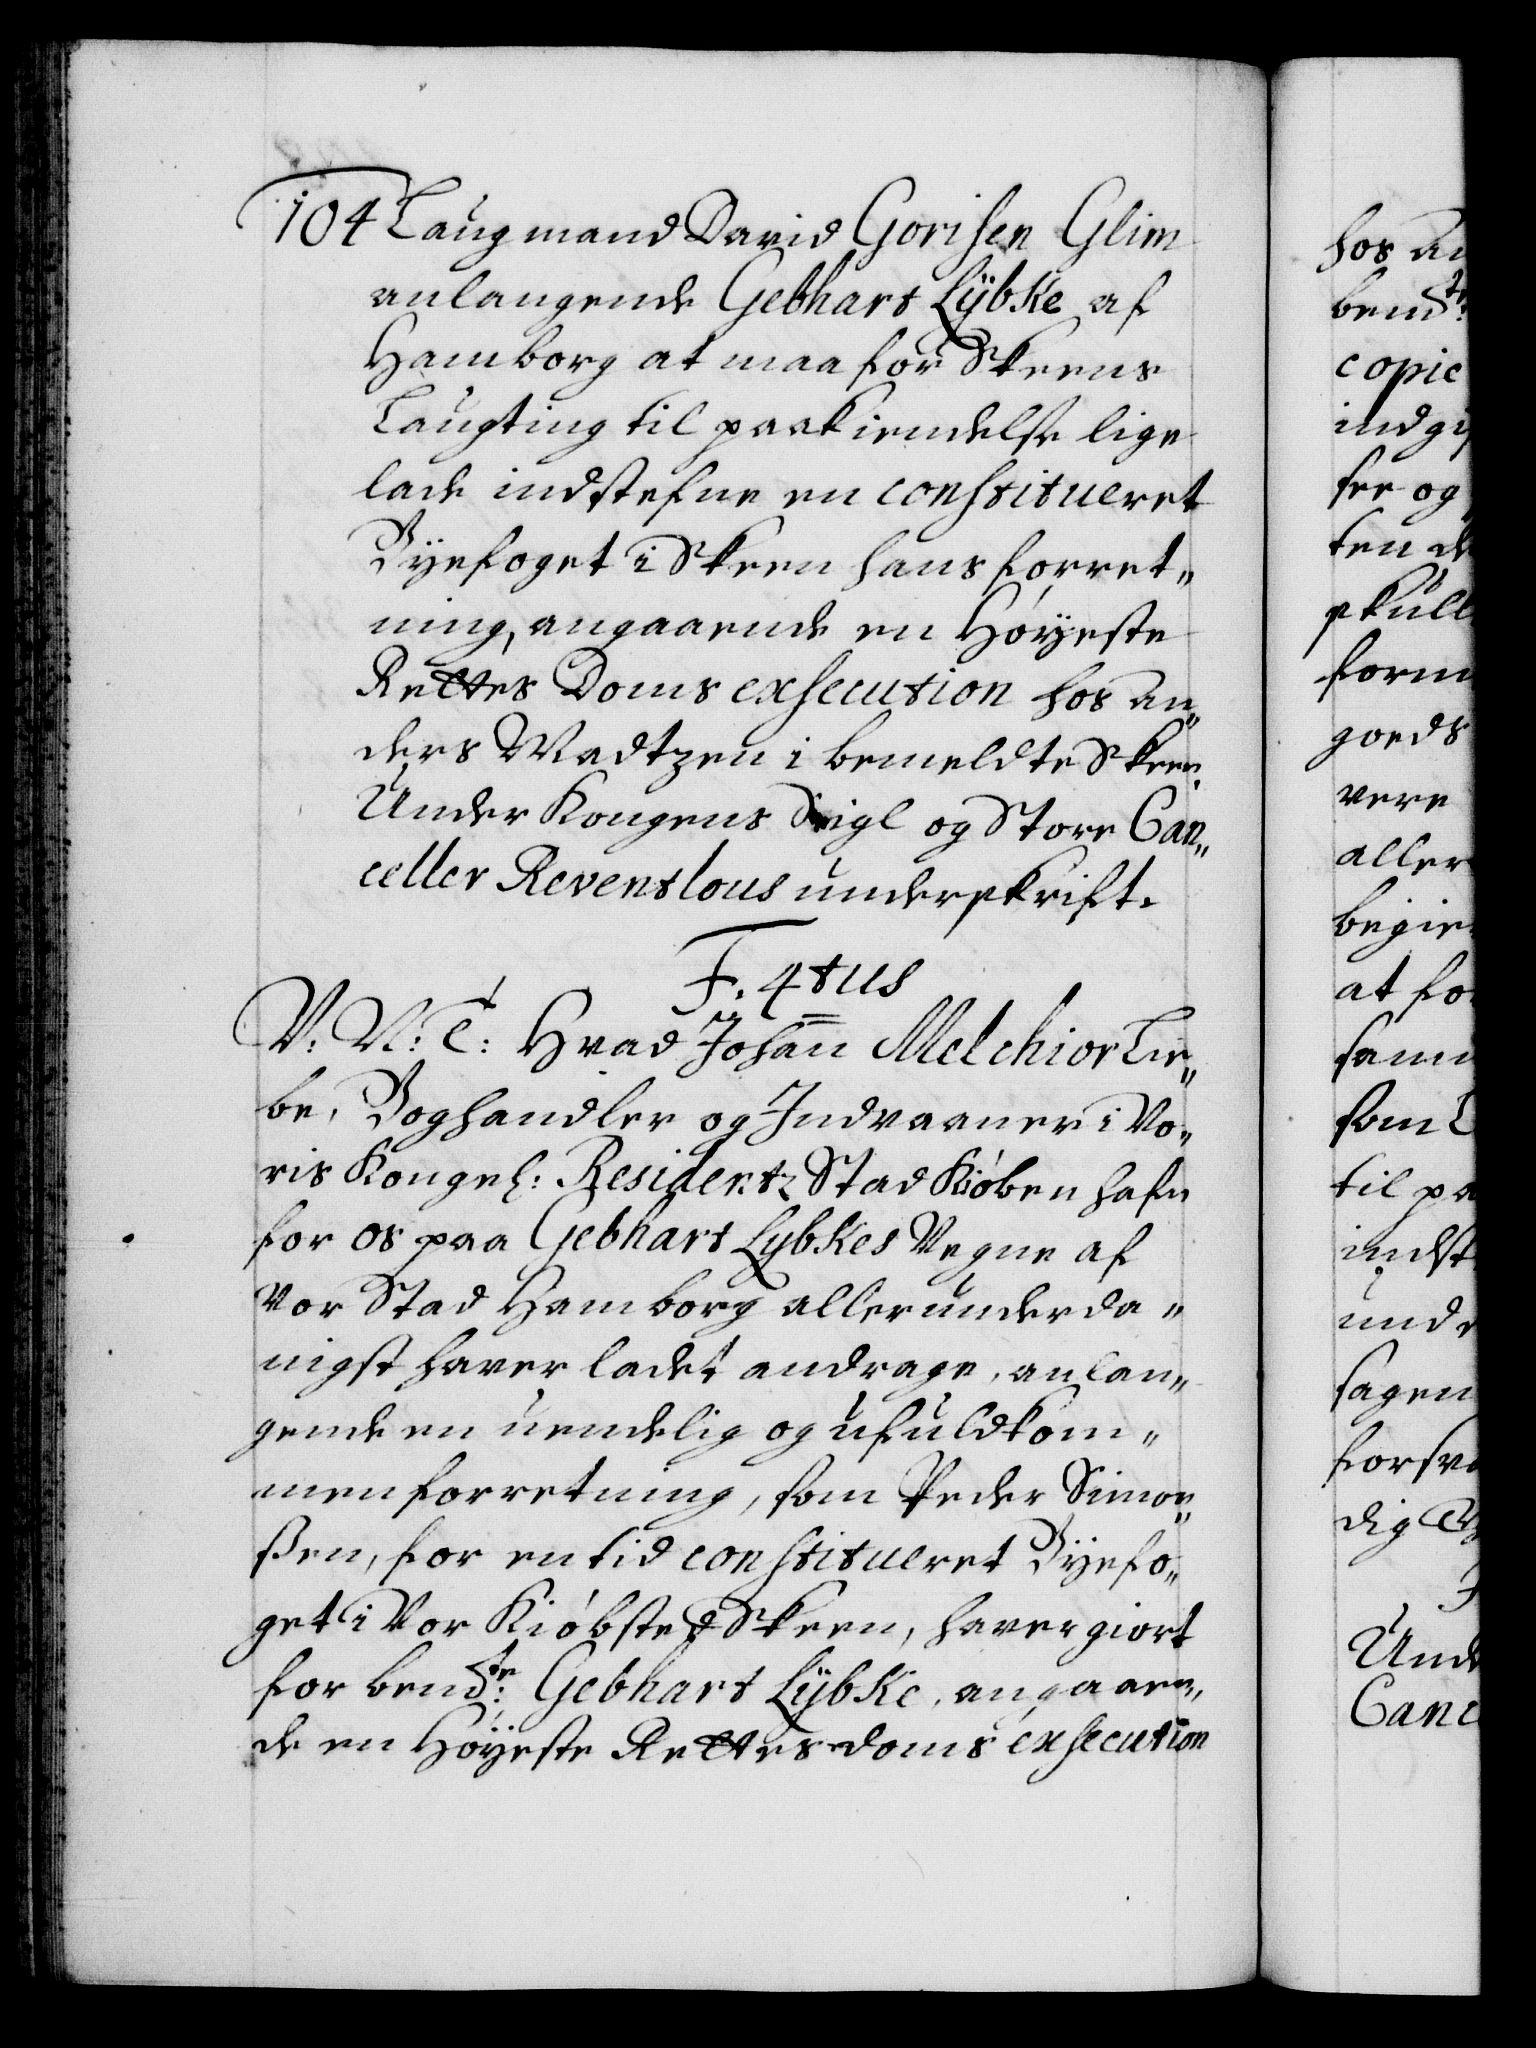 104 Laugmand David Gorisen Glim
anlangende Gebhart Lÿbke af
Hamborg at maa for Skeens
Laugting til paakiendelse lige
lade indstefne en constitueret
Byefoget i Skeen hans forret„
ning, angaaende en Høyeste
Rettes Doms exsecution hos An„
ders Madtzen i bemeldte Skeen.
Under Kongens Seigl og Store Can„
celler Reventlous underskrift.
F. 4tus
V: N: T: Hvad Johan Melchior Lie„
be, Boghandler og Indvaaner i Vo„
ris Kongel: Residentz Stad Kiøbenhafn
for os paa Gebhart Lybkes Vegne af
Vor Stad Hamborg allerunderda„
nigst haver ladet andrage, anlan„
gende en uendelig og ufuldkom„
men forretning, som Peder Simon„
ßen, for en tid constitueret Byefo„
get i Vor Kiøbsted Skeen, haver giort
for bemdte: Gebhart Lÿbke, angaaen„
de en Høyeste Rettes doms exsecution
hos An
bemdte:
copie
indgif
see og
ten de
skull
form
goeds
vere
aller
begier
at fo
sam
som L
til pa
indst
unde
sagen
forsva
dig
Unde
Canc